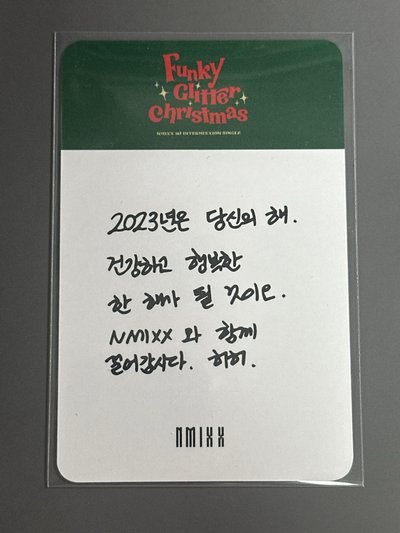 Funky
Glitter
Christmas
NMIXX 1st INTERMEXXION SINGLE
2023년은 당신의 해.
건강하고 행복한
한 해가 될 거이오.
NMIXX 와 함께
끌어갑시다. 하하.
NMIXX